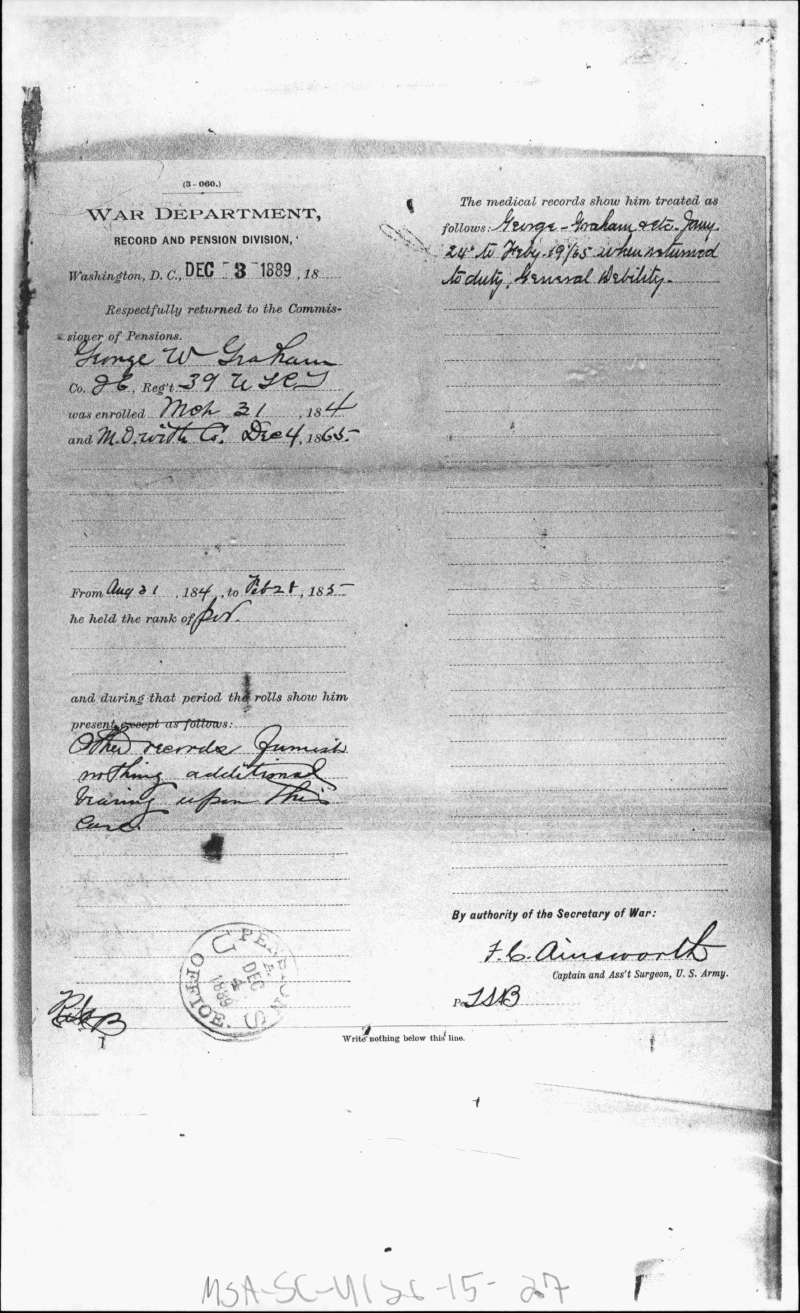 (3 - 060.)
WAR DEPARTMENT,
RECORD AND PENSION DIVISION,
Washington, D. C., DEC - 3 1889, 18
Respectfully returned to the Commis-
sioner of Pensions.
George W Graham
Co. E, Reg't 39 U S C T
was enrolled Mch 31, 184
and M.O. with Co. Dec 4, 1865.
From Aug 31, 184, to Feb 28, 185
he held the rank of
and during that period the rolls show him
present except as follows:
Other records furnish
nothing additional
bearing upon this
case.
PENSION OFFICE
U. S.
DEC
4
1889
The medical records show him treated as
follows: George Graham & etc. Jany.
24" to Feby. 19/65 when returned
to duty, General Debility.
By authority of the Secretary of War:
F. C. Ainsworth
Captain and Ass't Surgeon, U. S. Army.
Per
Write nothing below this line.
MSA-SC-4126-15-27